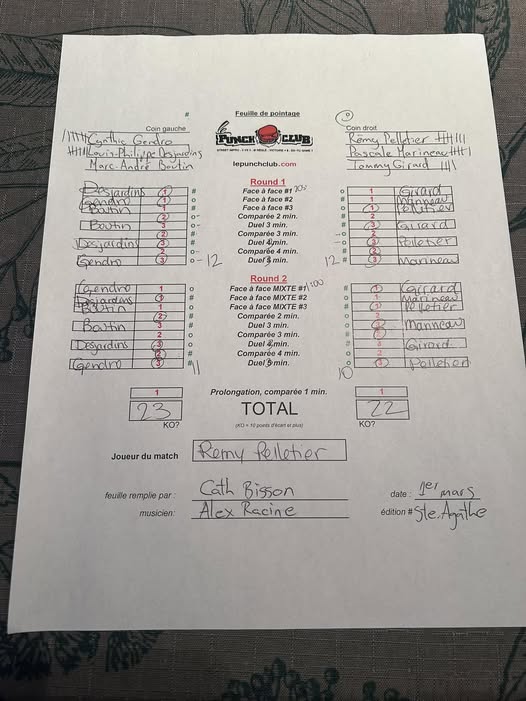 # Feuille de pointage
Coin gauche Coin droit
Cynthia Gendro
Louis-Philippe Desjardins
Marc-André Boutin
le PUNCH CLUB
lepunchclub.com
Rémy Pelletier
Pascale Marineau
Tommy Girard
Round 1
Desjardins 1 # Face à face #1 o 1 Girard
Gendro 1 o Face à face #2 # 1 Marineau
Boutin 1 # Face à face #3 o 1 Pelletier
2 o Comparée 2 min. # 2
Boutin 3 # Duel 3 min. o 3 Girard
2 Comparée 3 min. 2
Desjardins 3 # Duel 4 min. o 3 Pelletier
2 o Comparée 4 min. # 2
Gendro 3 12 Duel 5 min. 12 3 Marineau
Round 2
Gendro 1 o Face à face MIXTE #1 # 1 Girard
Desjardins 1 # Face à face MIXTE #2 o 1 Marineau
Boutin 1 o Face à face MIXTE #3 # 1 Pelletier
2 # Comparée 2 min. o
Boutin 3 o Duel 3 min. # Marineau
2 # Comparée 3 min. o
Desjardins 3 o Duel 4 min. # 3 Girard
2 # Comparée 4 min. o
Gendro 3 11 Duel 5 min. 10 3 Pelletier
1 Prolongation, comparée 1 min. 1
23 TOTAL 22
(KO = 10 points d'écart et plus)
KO? KO?
Joueur du match Remy Pelletier
feuille remplie par : Cath Bisson date : 1er mars
musicien: Alex Racine édition # Ste. Agathe